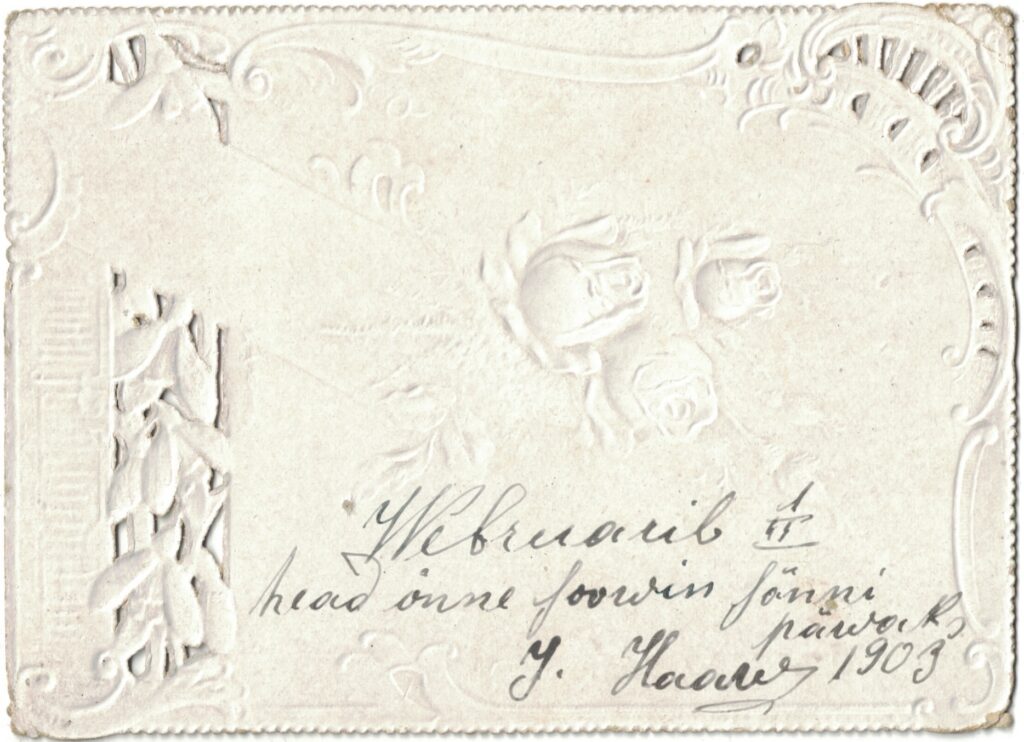 Webruaril 1/II
head õnne soowin sünni
päwaks
J. Haaw 1903